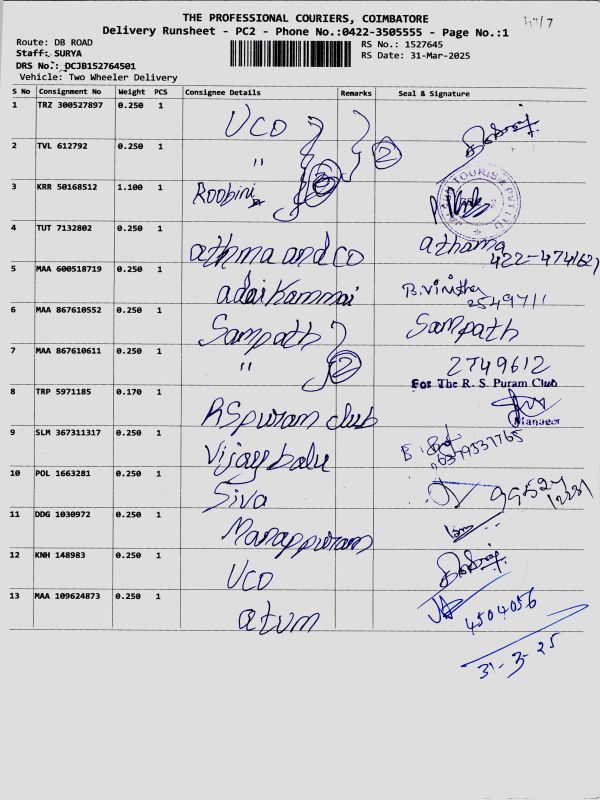 THE PROFESSIONAL COURIERS, COIMBATORE
Delivery Runsheet - PC2 - Phone No.:0422-3505555 - Page No.:1
Route: DB ROAD
RS No.: 1527645
Staff: SURYA
RS Date: 31-Mar-2025
DRS No.: DCJB152764501
Vehicle: Two Wheeler Delivery
S No Consignment No Weight PCS Consignee Details Remarks Seal & Signature
1 TRZ 300527897 0.250 1 UCO
2 TVL 612792 0.250 1 " 2
3 KRR 50168512 1.100 1 Roobini
4 TUT 7132802 0.250 1 athma and co athama
422-4741621
5 MAA 600518719 0.250 1 adaikammai B.vinitha
2549711
6 MAA 867610552 0.250 1 Sampath Sampath
7 MAA 867610611 0.250 1 " 2 2749612
For The R. S. Puram Club
8 TRP 5971185 0.170 1 RSpuram club
Manager
9 SLM 367311317 0.250 1 Vijay balu
6379531765
10 POL 1663281 0.250 1 Siva
11 DDG 1030972 0.250 1 Manappuram
12 KNH 148983 0.250 1 UCO
13 MAA 109624873 0.250 1 atum 4504056
31-3-25